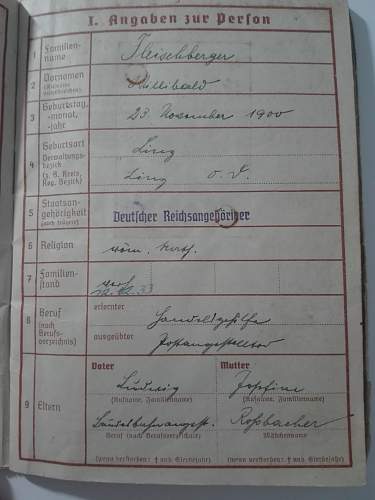 I. Angaben zur Person
1 Familien-
name Fleischberger
2 Vornamen
(Rufname
unterstreichen) Willibald
3 Geburtstag,
-monat,
-jahr 23. November 1900
4 Geburtsort Linz
Verwaltungs-
bezirk
(z. B. Kreis,
Reg. Bezirk) Linz O. D.
5 Staatsan-
gehörigkeit
(auch frühere) Deutscher Reichsangehöriger
6 Religion röm. kath.
7 Familien-
stand verh.
33
8 Beruf
(nach
Berufs-
verzeichnis)
erlernter Handelsgehilfe
ausgeübter Postangestellter
9 Eltern
Vater Mutter
Ludwig Josefine
(Rufname, Familienname) (Rufname, Familienname)
Roßbacher
Beruf (nach Berufsverzeichnis) (Mädchenname)
(wenn verstorben: † und Sterbejahr) (wenn verstorben: † und Sterbejahr)